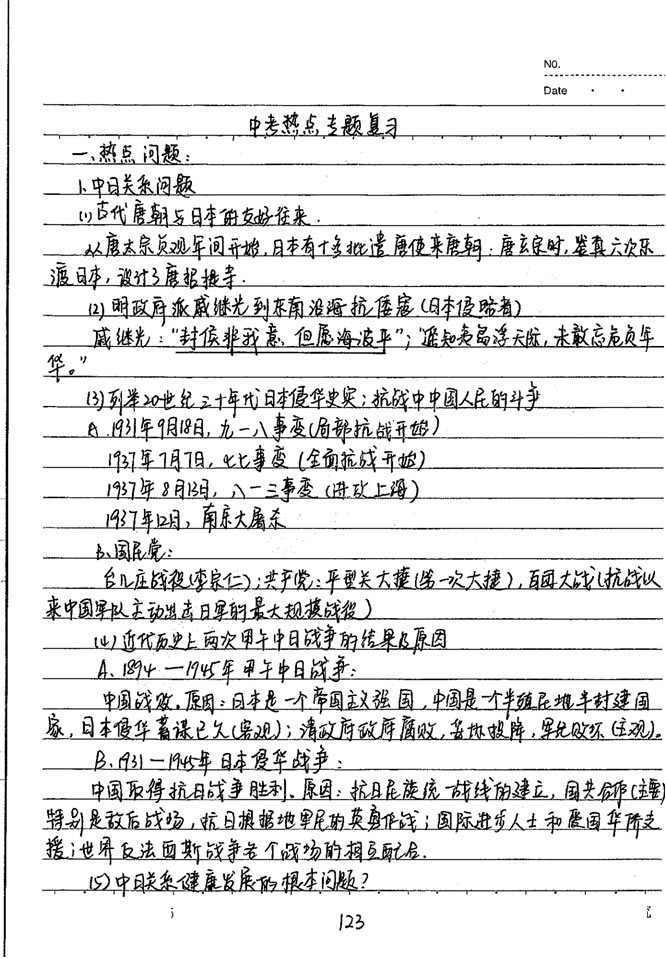 No.
Date
中考热点专题复习
一、热点问题：
1、中日关系问题
(1)古代唐朝与日本的友好往来.
从唐太宗贞观年间开始,日本有十多批遣唐使来唐朝.唐玄宗时,鉴真六次东
渡日本,设计了唐招提寺.
(2)明政府派戚继光到东南沿海抗倭寇(日本侵略者)
戚继光:"封侯非我意,但愿海波平";"遥知夷岛浮天际,未敢忘危负年
华。"
(3)列举20世纪三十年代日本侵华史实;抗战中中国人民的斗争
A.1931年9月18日,九一八事变(局部抗战开始)
1937年7月7日,七七事变(全面抗战开始)
1937年8月13日,八一三事变(进攻上海)
1937年12月,南京大屠杀
B、国民党:
台儿庄战役(李宗仁);共产党:平型关大捷(第一次大捷),百团大战(抗战以
来中国军队主动出击日军的最大规模战役)
(4)近代历史上两次甲午中日战争的结果及原因
A、1894—1945年甲午中日战争:
中国战败.原因:日本是一个帝国主义强国,中国是一个半殖民地半封建国
家,日本侵华蓄谋已久(客观);清政府政府腐败,妥协投降,军纪败坏(主观)。
B、1931—1945年日本侵华战争:
中国取得抗日战争胜利、原因:抗日民族统一战线的建立,国共合作(主要)
特别是敌后战场,抗日根据地军民的英勇作战;国际进步人士和爱国华侨支
援;世界反法西斯战争各个战场的相互配合.
(5)中日关系健康发展的根本问题?
123